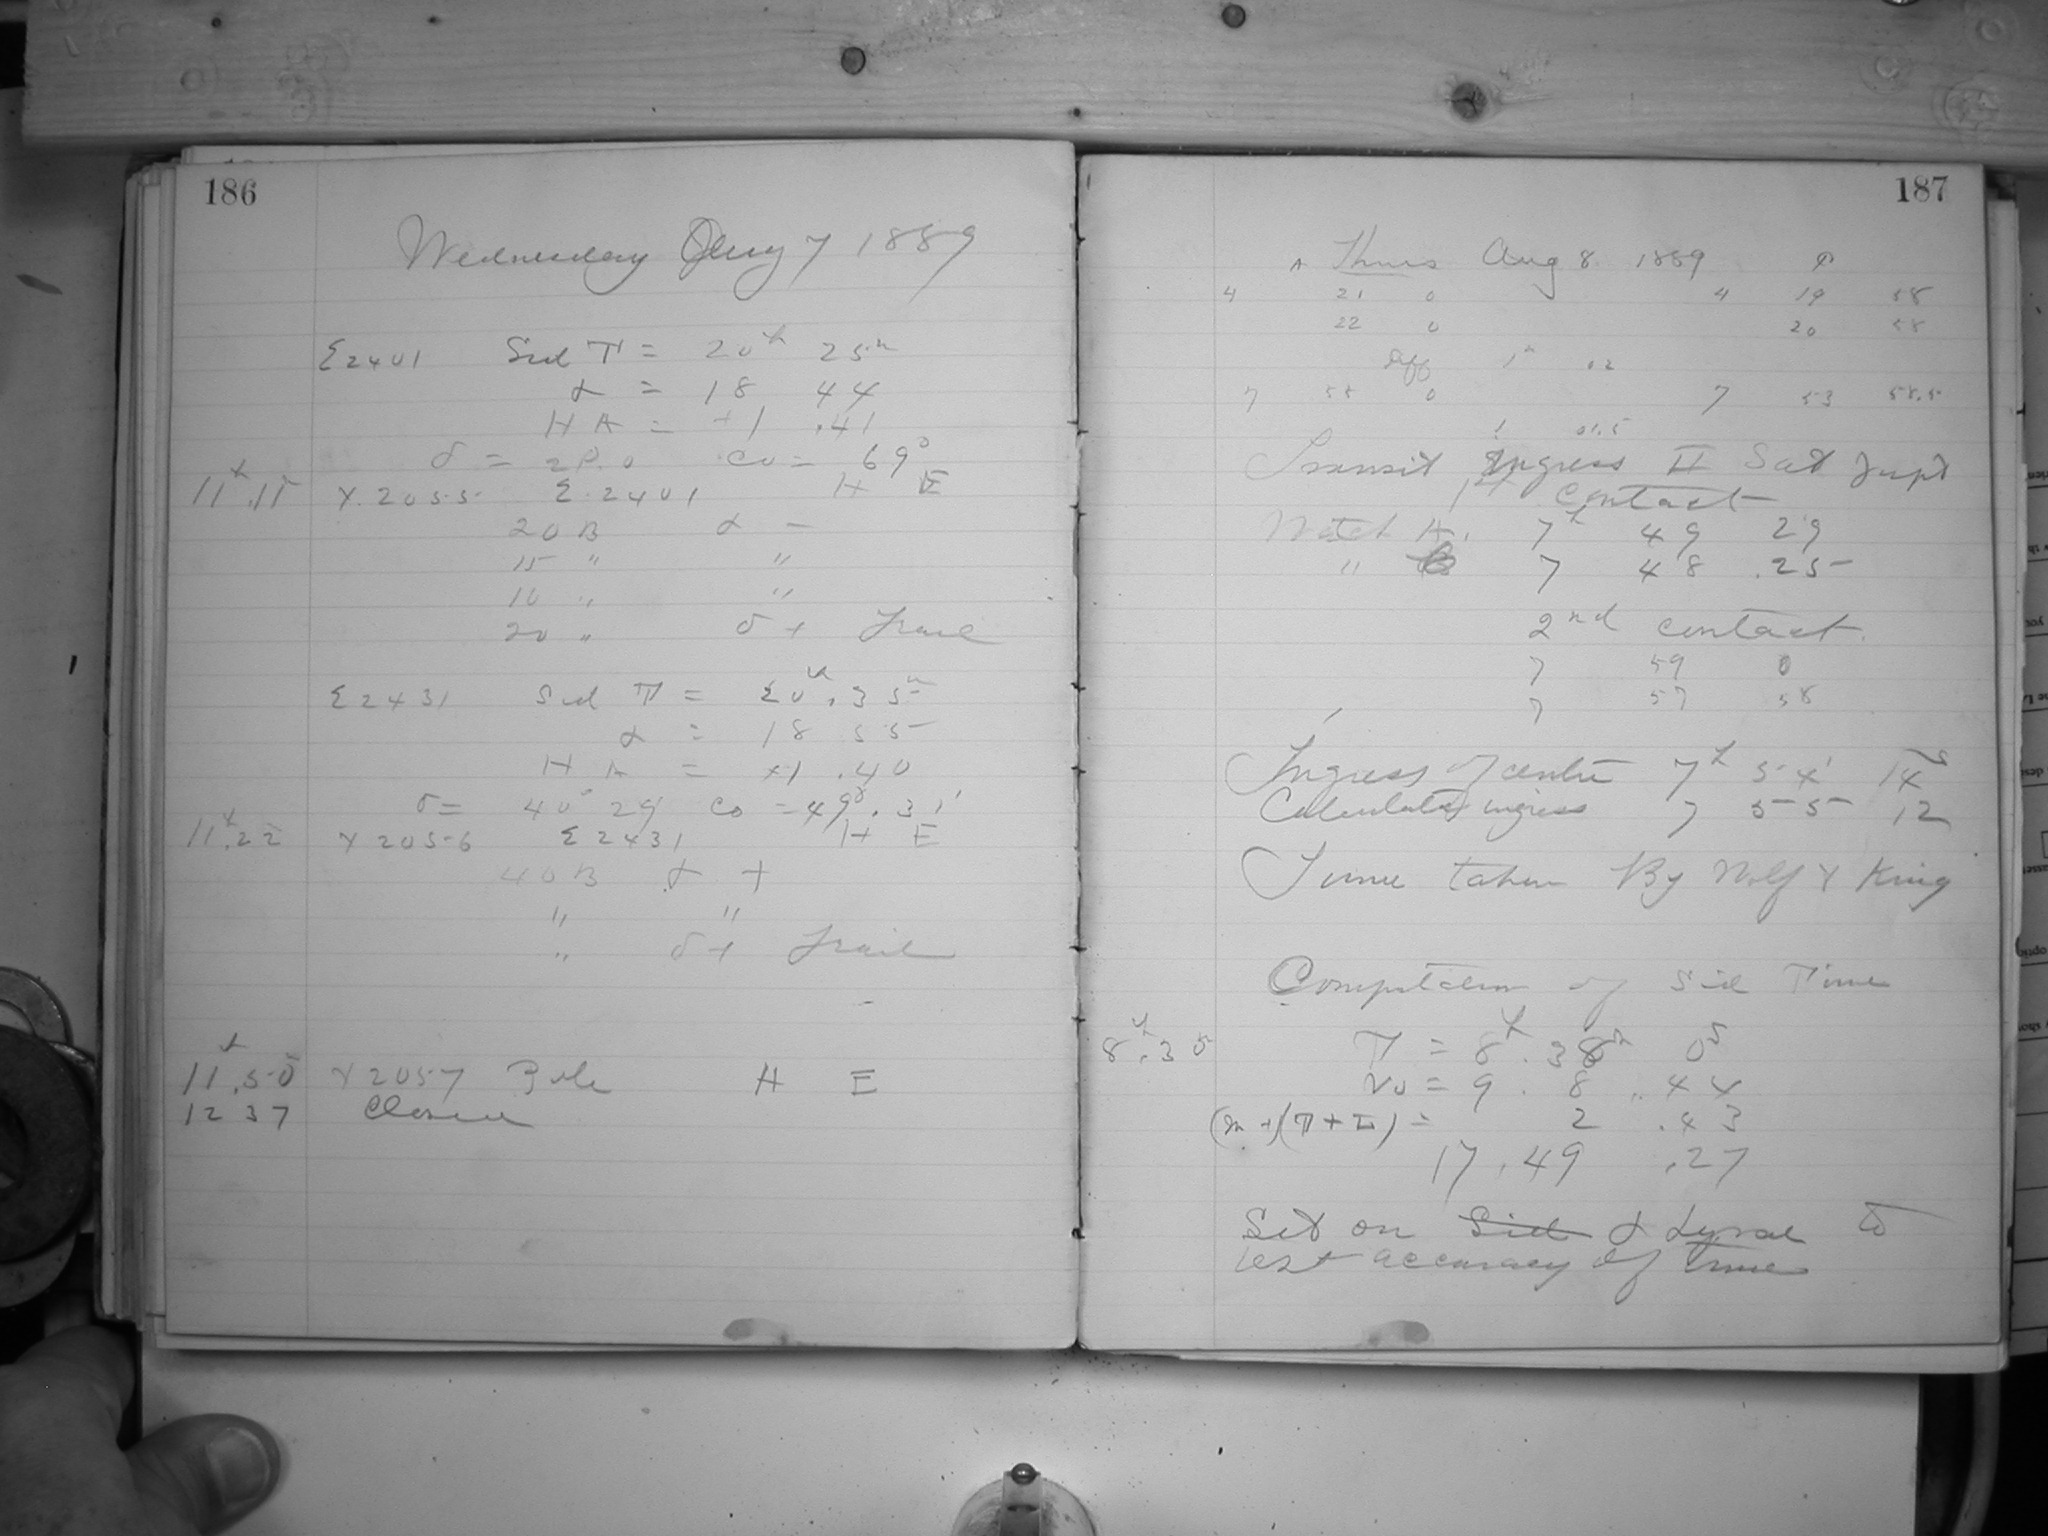 186
Wednesday Aug 7 1889
Σ2401 Sid T = 20h 25m
α = 18 44
HA = +1 .41
δ = 28.0 co = 69°
11h.15 Y.2055 Σ.2401 H E
20 B α -
15 " "
10 " "
20 " δ + Trail
Σ2431 Sid T = 20h.35m
α = 18 55
HA = +1 .40
δ = 40° 29' co = 49°.31'
11h.22 Y 2056 Σ2431 H E
40 B α +
" "
" δ + Trail
11h.50 Y 2057 Pole H E
12 37 Closed
187
A Thurs Aug 8 1889 B
4 21 0 4 19 58
22 0 20 58
Diff 1m 02
7 55 0 7 53 58.5
1 01.5
Transit Ingress II Sat Jupt
1st Contact
Watch A. 7h 49 29
" B 7 48 .25
2nd contact
7 59 0
7 57 58
Ingress of centre 7h 54' 14s
Calculated ingress 7 55 12
Time taken By Wolf & King
Computation of Sid Time
8h.35 T = 8h.38m 0s
V0 = 9 . 8 . 44
(m+)(T+L) = 2 .43
17.49 .27
Set on Sid α Lyrae to
test accuracy of time